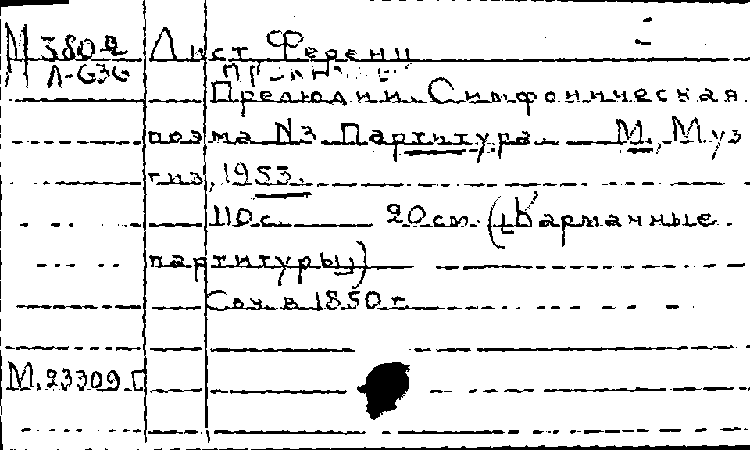 М 380 Лист Ференц
Л-636
Прелюдии. Симфоническая
поэма N3. Партитура. М., Муз
гиз, 1953.
110 с. 20 см. (Карманные
партитуры)
Соч. в 1850 г.
М.23309.Г